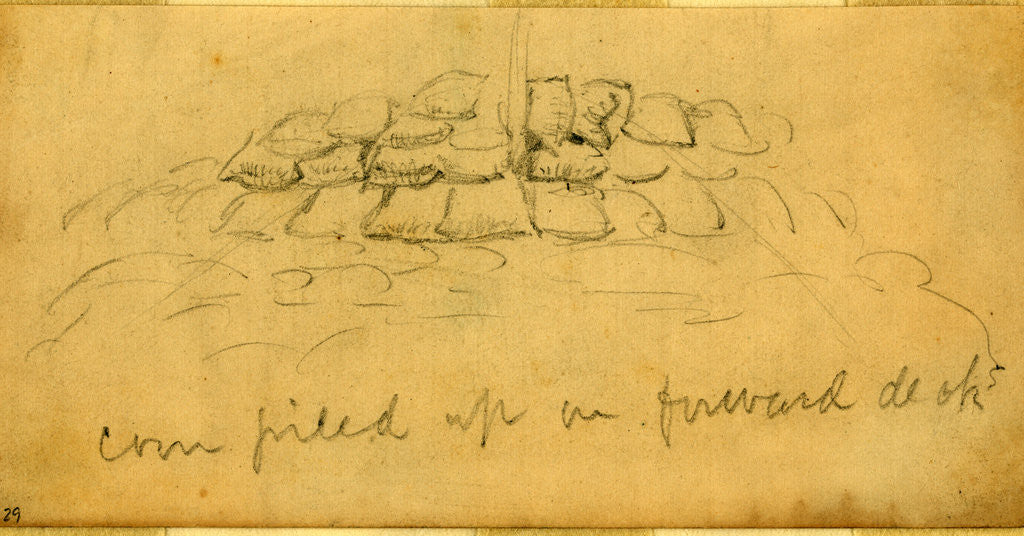 corn piled up on forward decks
29